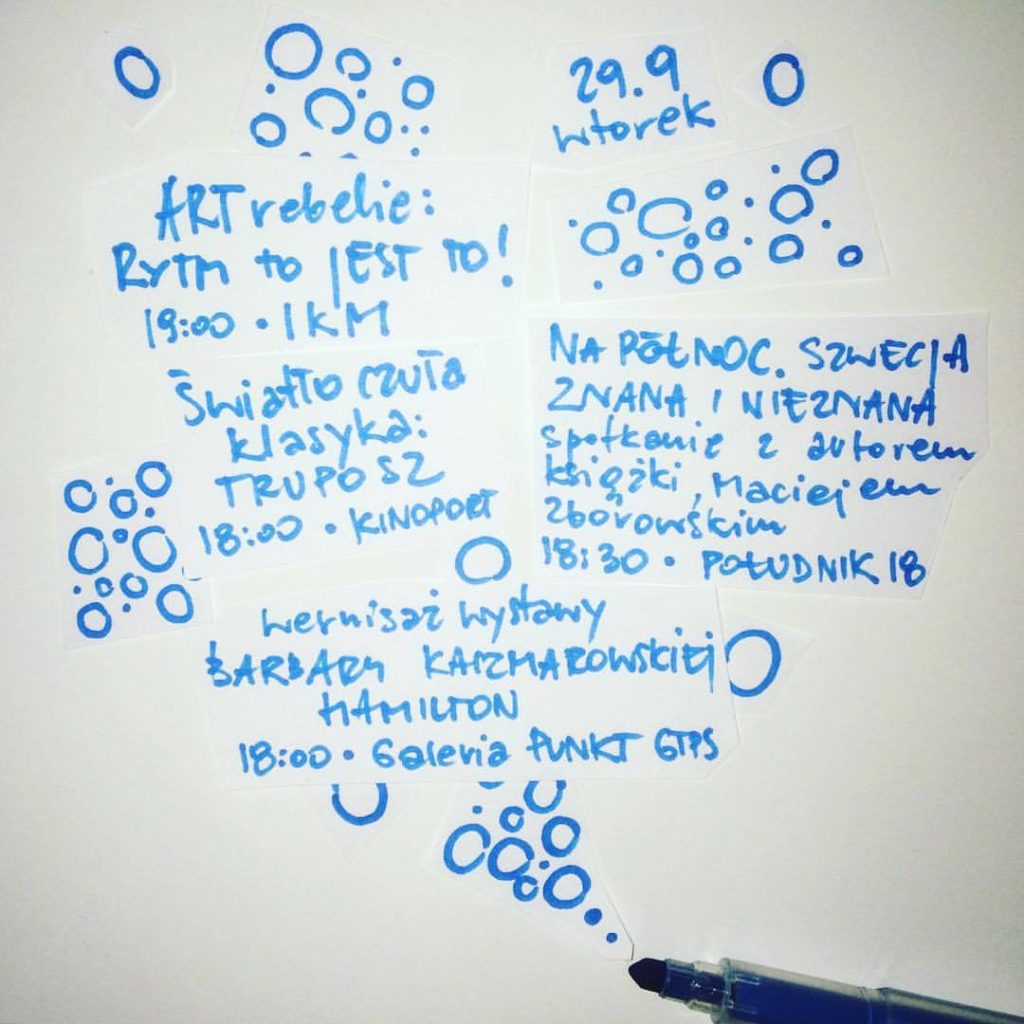 29.9
wtorek
ARTrebelie:
RYTM to JEST TO!
19:00 • 1KM
Światło czuła
klasyka:
TRUPOSZ
18:00 • KINOPORT
NA PÓŁNOC. SZWECJA
ZNANA I NIEZNANA
spotkanie z autorem
książki, Maciejem
Zborowskim
18:30 • POŁUDNIK 18
wernisaż wystawy
BARBARY KACZMAROWSKIEJ
HAMILTON
18:00 • Galeria PUNKT GTPS